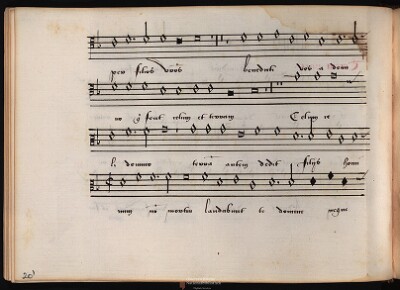 per filios vestros benedicti vos a domi
no q̄ fecit celum et terram Celum ce
li domino terrā autem dedit filijs homi
num nō mortui laudabunt te domine neqꝫ
20